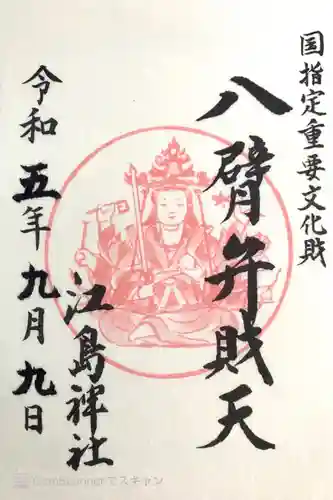 国指定重要文化財
八臂弁財天
江島神社
令和五年九月九日
CamScannerでスキャン